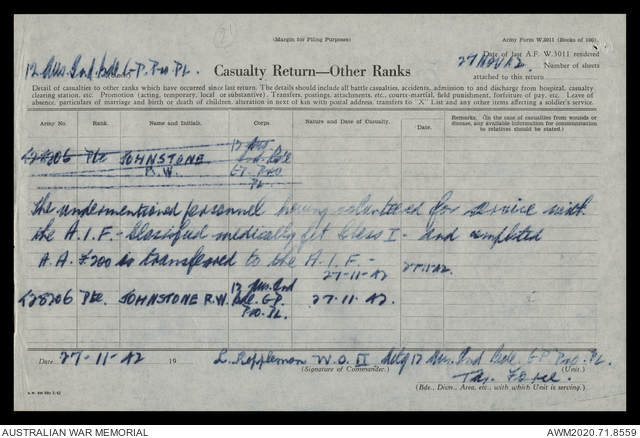 (Margin for Filing Purposes)
Army Form W.3011 (Books of 100)
12 Aus. Ind. Bde. G.P. Pro. Pl.
Date of last A.F. W.3011 rendered
27 Nov 42.
Number of sheets
attached to this return
Casualty Return—Other Ranks
Detail of casualties to other ranks which have occurred since last return. The details should include all battle casualties, accidents, admission to and discharge from hospital, casualty
clearing station, etc. Promotion (acting, temporary, local or substantive). Transfers, postings, attachments, etc., courts-martial, field punishment, forfeiture of pay, etc. Leave of
absence, particulars of marriage and birth or death of children, alteration in next of kin with postal address, transfers to "X" List and any other items affecting a soldier's service.
Army No. Rank. Name and Initials. Corps. Nature and Date of Casualty. Date. Remarks. (In the case of casualties from wounds or
disease, any available information for communication
to relatives should be stated.)
Pte JOHNSTONE
The undermentioned personnel having volunteered for service with
the A.I.F. - Classified medically fit Class I - and completed
A.A. F.200 is transferred to the A.I.F. -
27-11-42 27.11.42.
Pte. JOHNSTONE R.W. 12 Aus. Ind
Bde. GP
Pro. PL.
27-11-42.
Date 27-11-42 19 W.O. II 12 Aus. Ind Bde. GP Pro. PL.
(Signature of Commander.) (Unit.)
(Bde., Divn., Area, etc., with which Unit is serving.)
AUSTRALIAN WAR MEMORIAL
AWM2020.71.8559